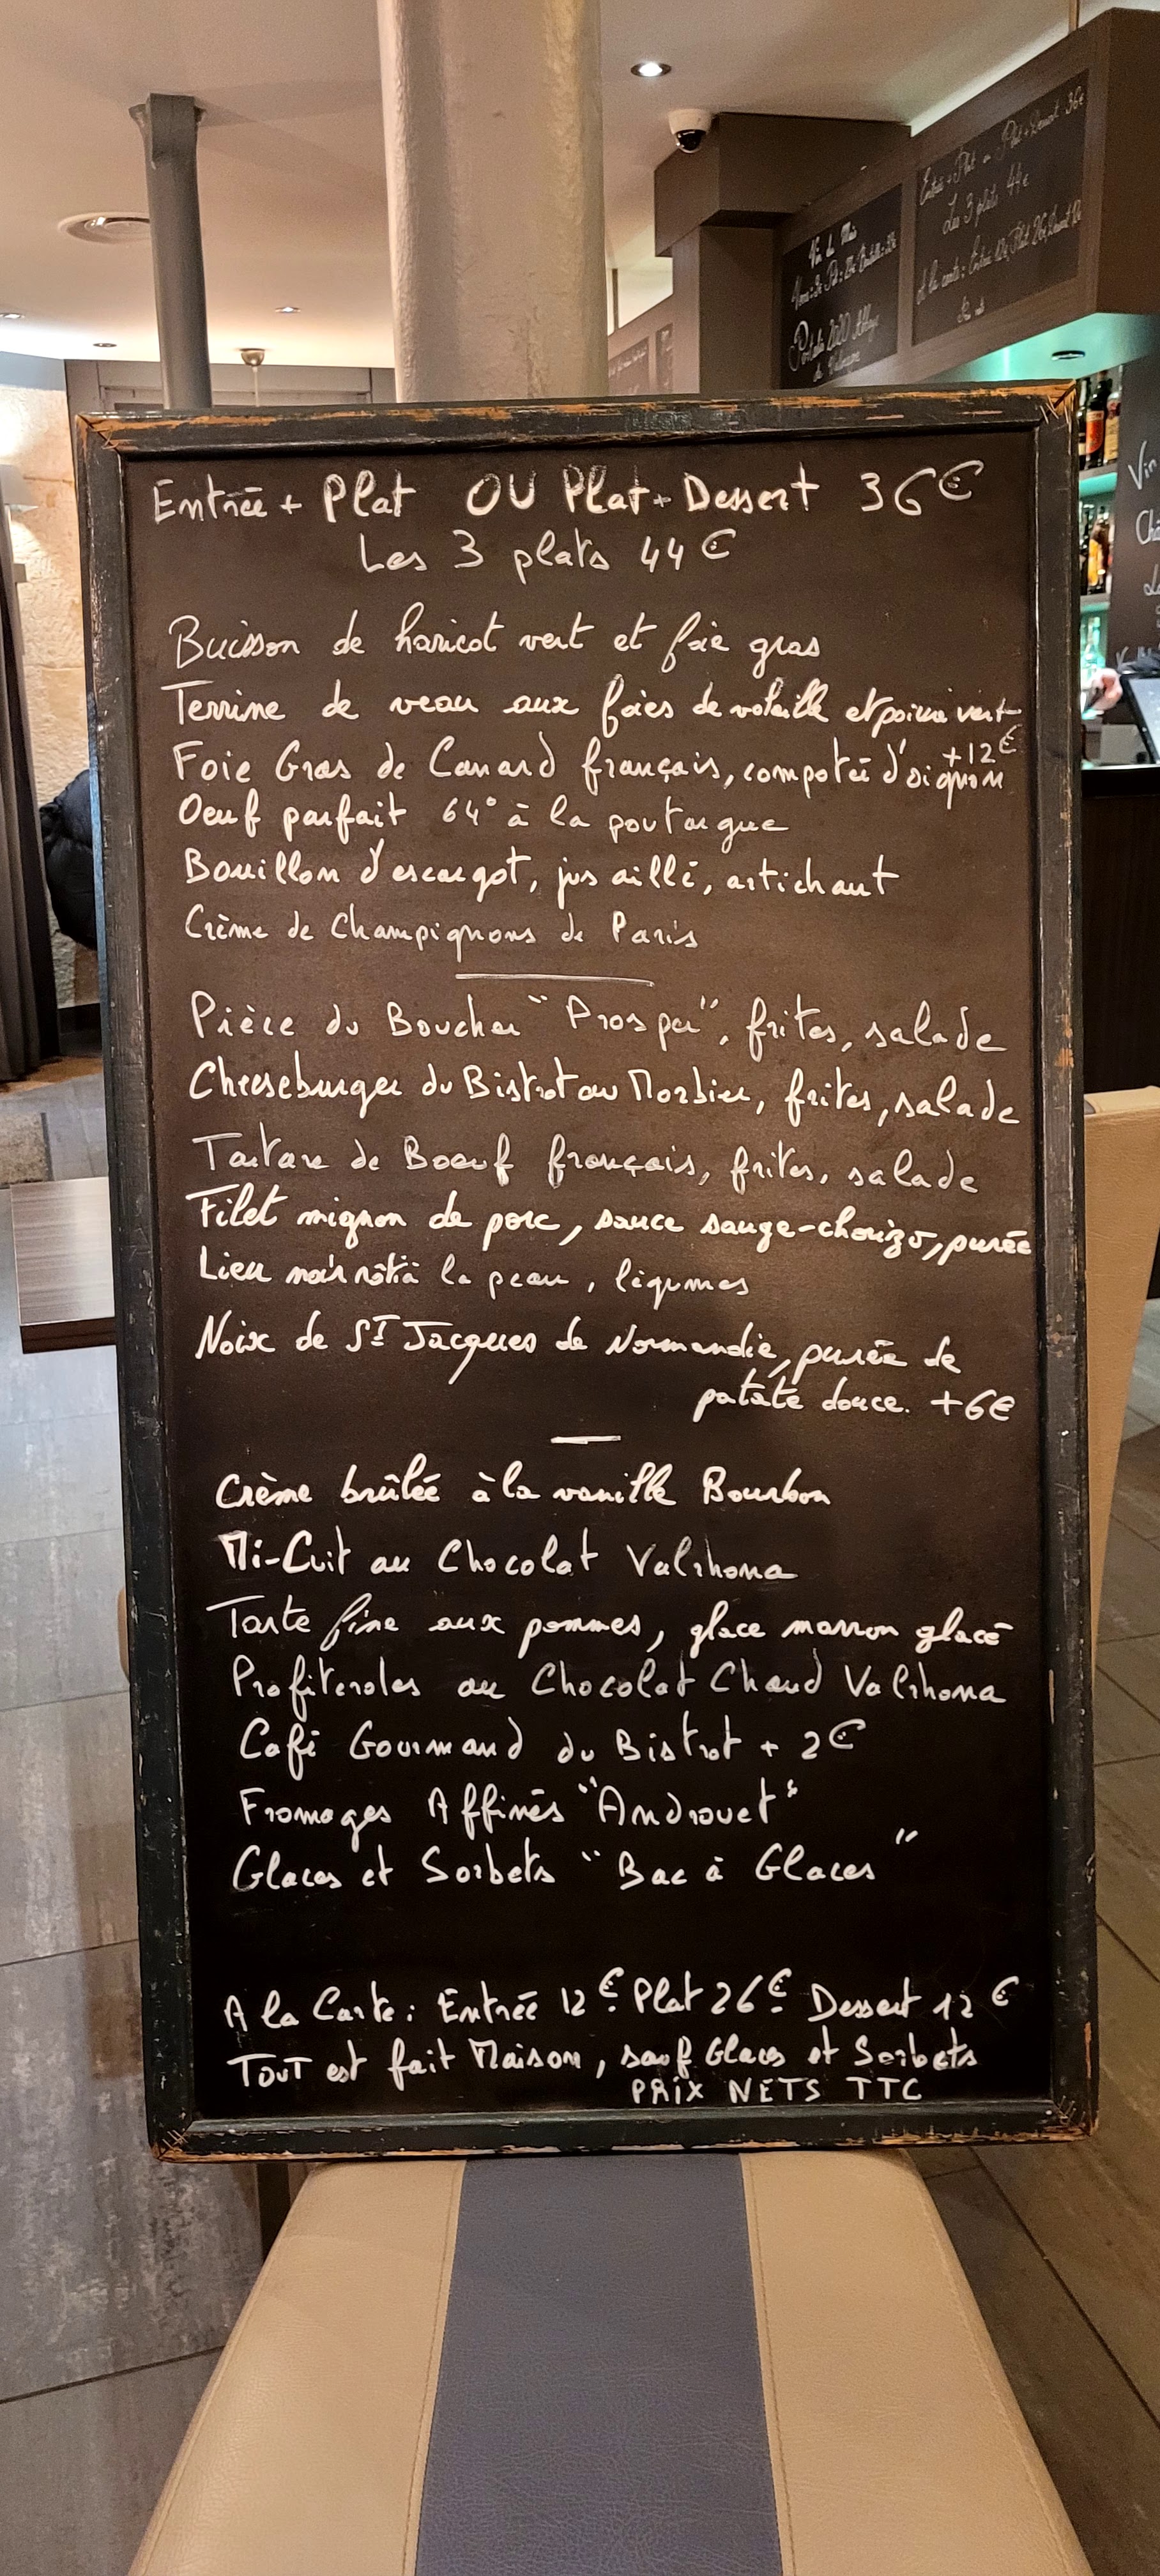 Entrée + Plat ou Plat + Dessert 36€
Les 3 plats 44€
A la carte: Entrée 12€, Plat 26€, Dessert 12
Vin du Mois
Entrée + Plat OU Plat + Dessert 36€
Les 3 plats 44€
Buisson de haricot vert et foie gras
Terrine de veau aux foies de volaille et poivre vert
+12€
Foie Gras de Canard français, compotée d'oignon
Oeuf parfait 64° à la poutargue
Bouillon d'escargot, jus aillé, artichaut
Crème de Champignons de Paris
Pièce du Boucher "Prosper", frites, salade
Cheeseburger du Bistrot au Morbier, frites, salade
Tartare de Boeuf français, frites, salade
Filet mignon de porc, sauce sauge-chorizo, purée
Lieu noir rôti à la peau, légumes
Noix de ST Jacques de Normandie, purée de
patate douce. +6€
Crème brûlée à la vanille Bourbon
Mi-Cuit au Chocolat Valrhona
Tarte fine aux pommes, glace marron glacé
Profiteroles au Chocolat Chaud Valrhona
Café Gourmand du Bistrot + 2€
Fromages Affinés "Androuet"
Glaces et Sorbets "Bac à Glaces"
A la Carte: Entrée 12€ Plat 26€ Dessert 12€
TOUT est fait Maison, sauf Glaces et Sorbets
PRIX NETS TTC
Vin